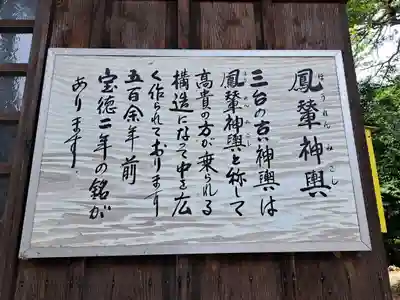 鳳輦神輿
ほうれんみこし
三台の古い神輿は
鳳輦神輿と称して
高貴の方が乗られる
構造になって中を広
く作られております
五百余年前
宝徳二年の銘が
あります。